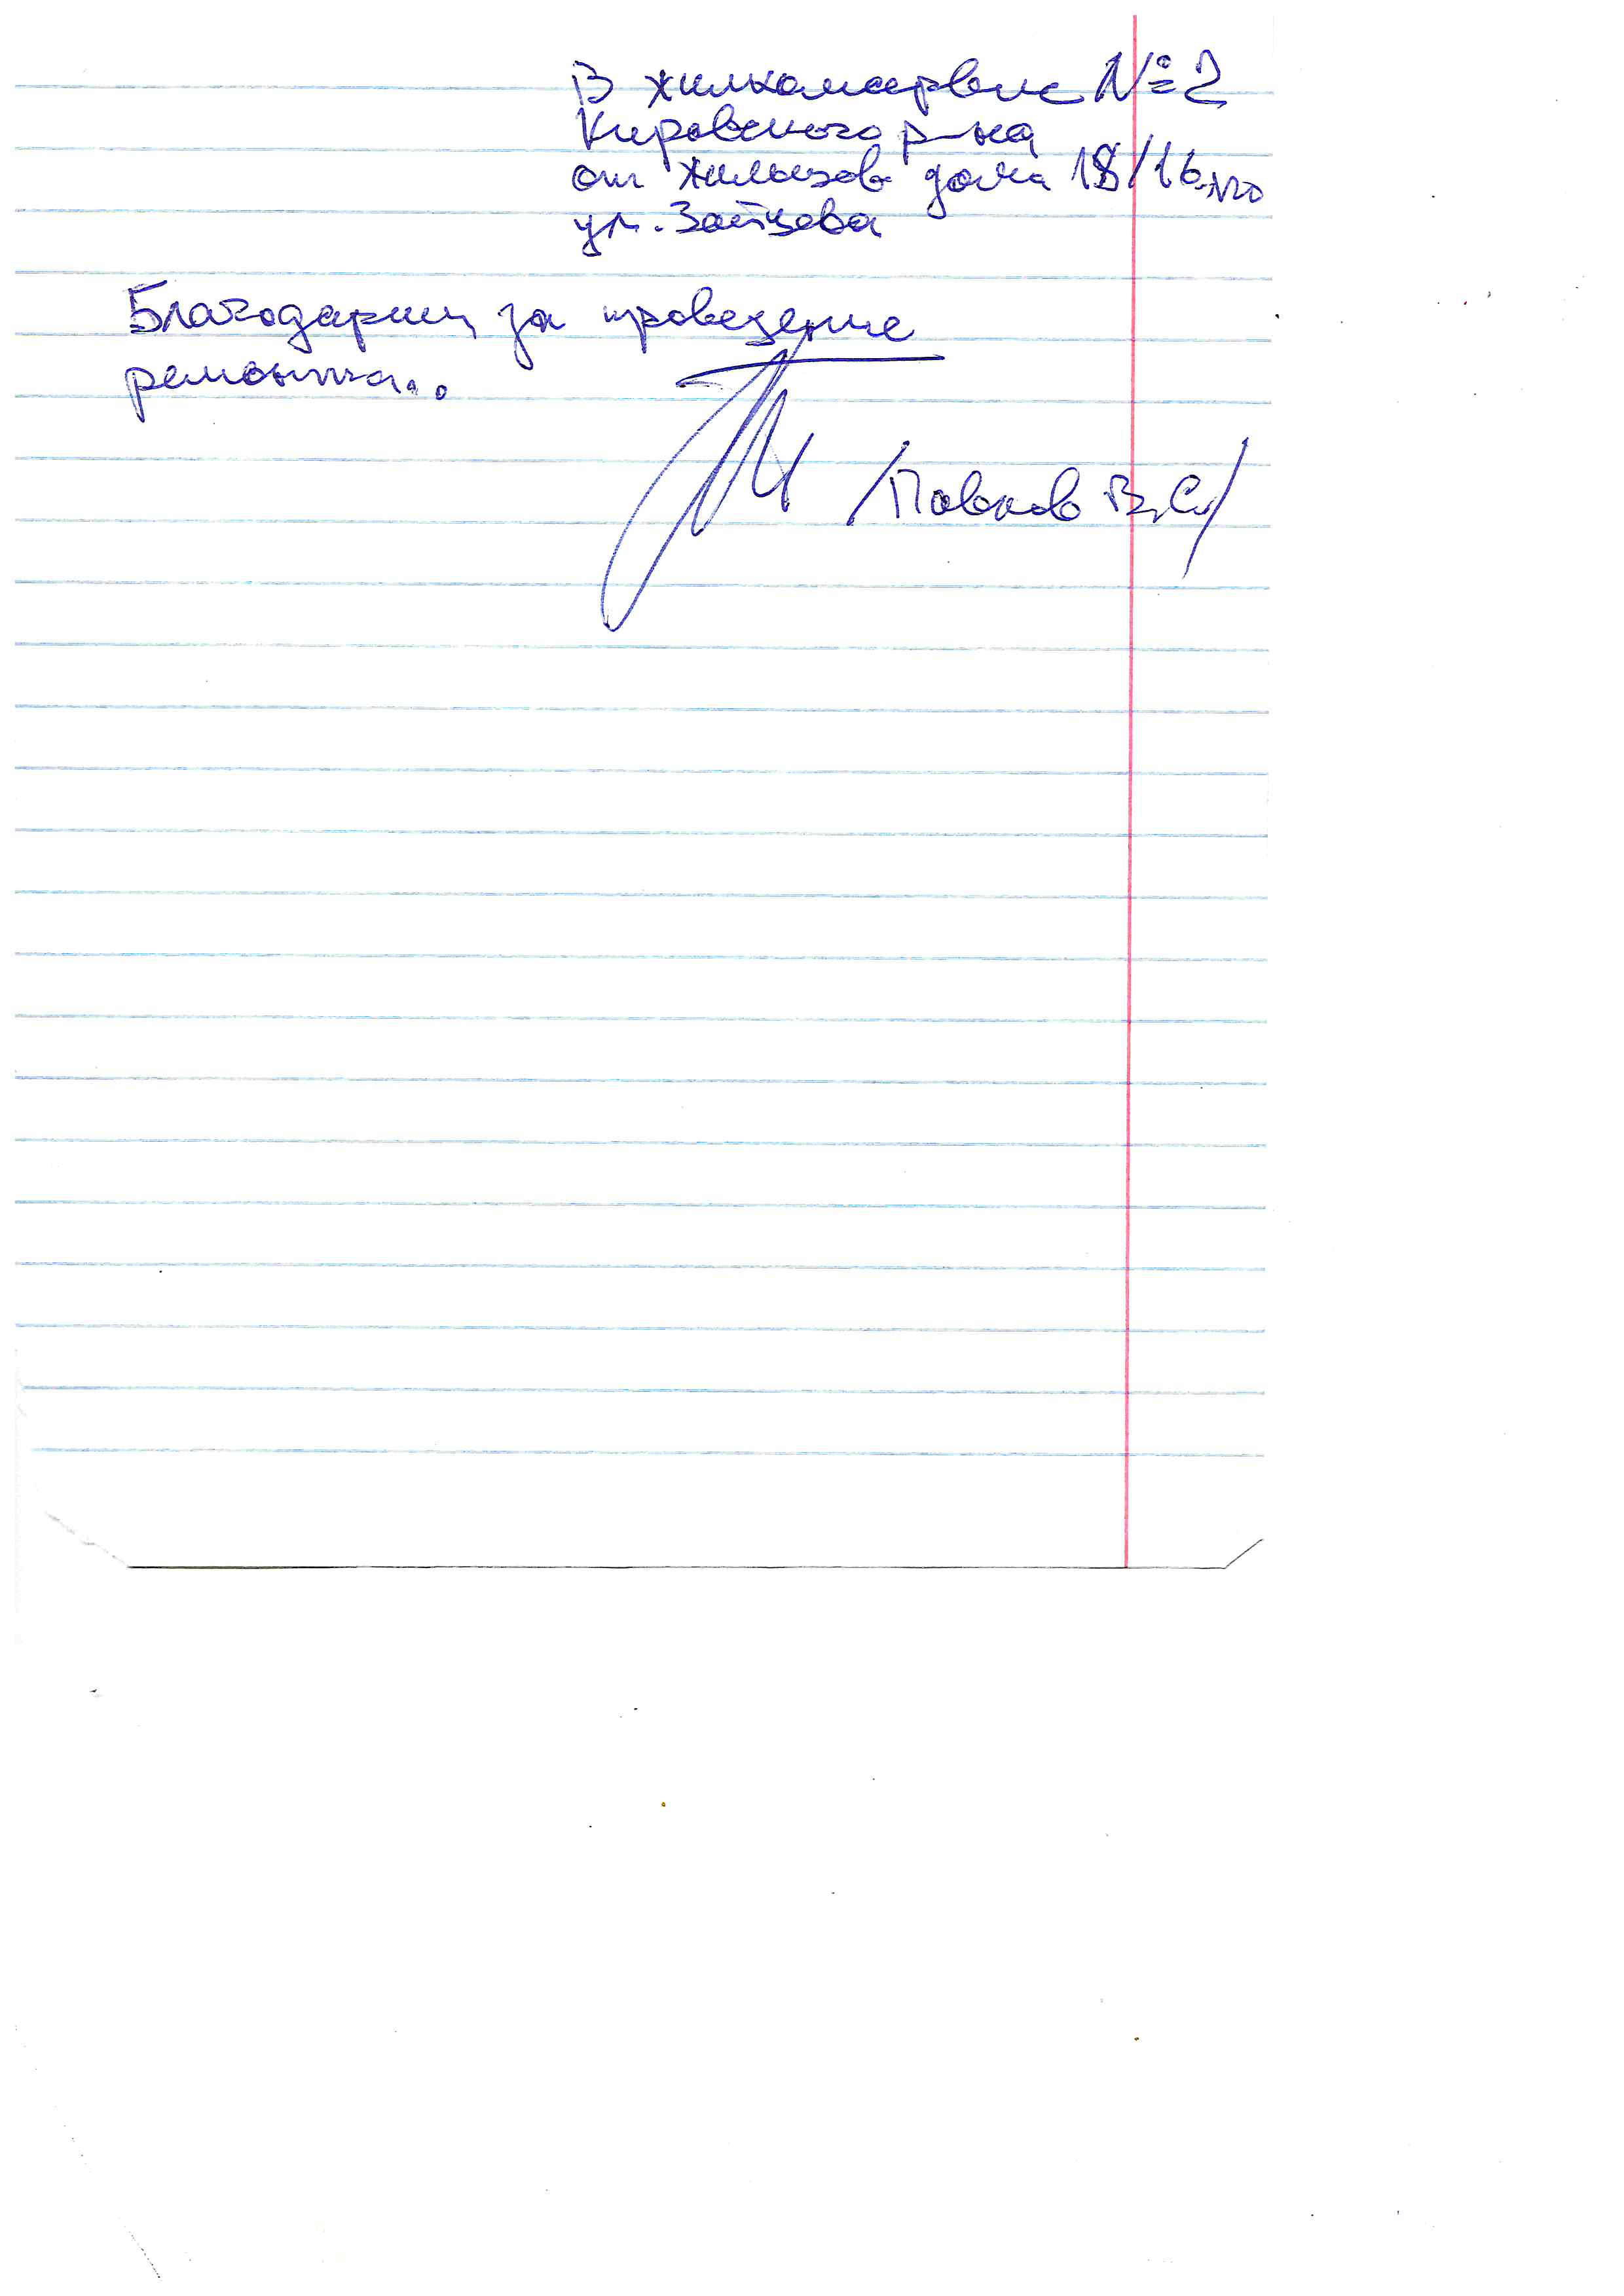 В жилкомсервис №2
Кировского р-на
от жильцов дома 18/16 по
ул. Зайцева
Благодарим за проведение
ремонта...
/Павлов В.С./